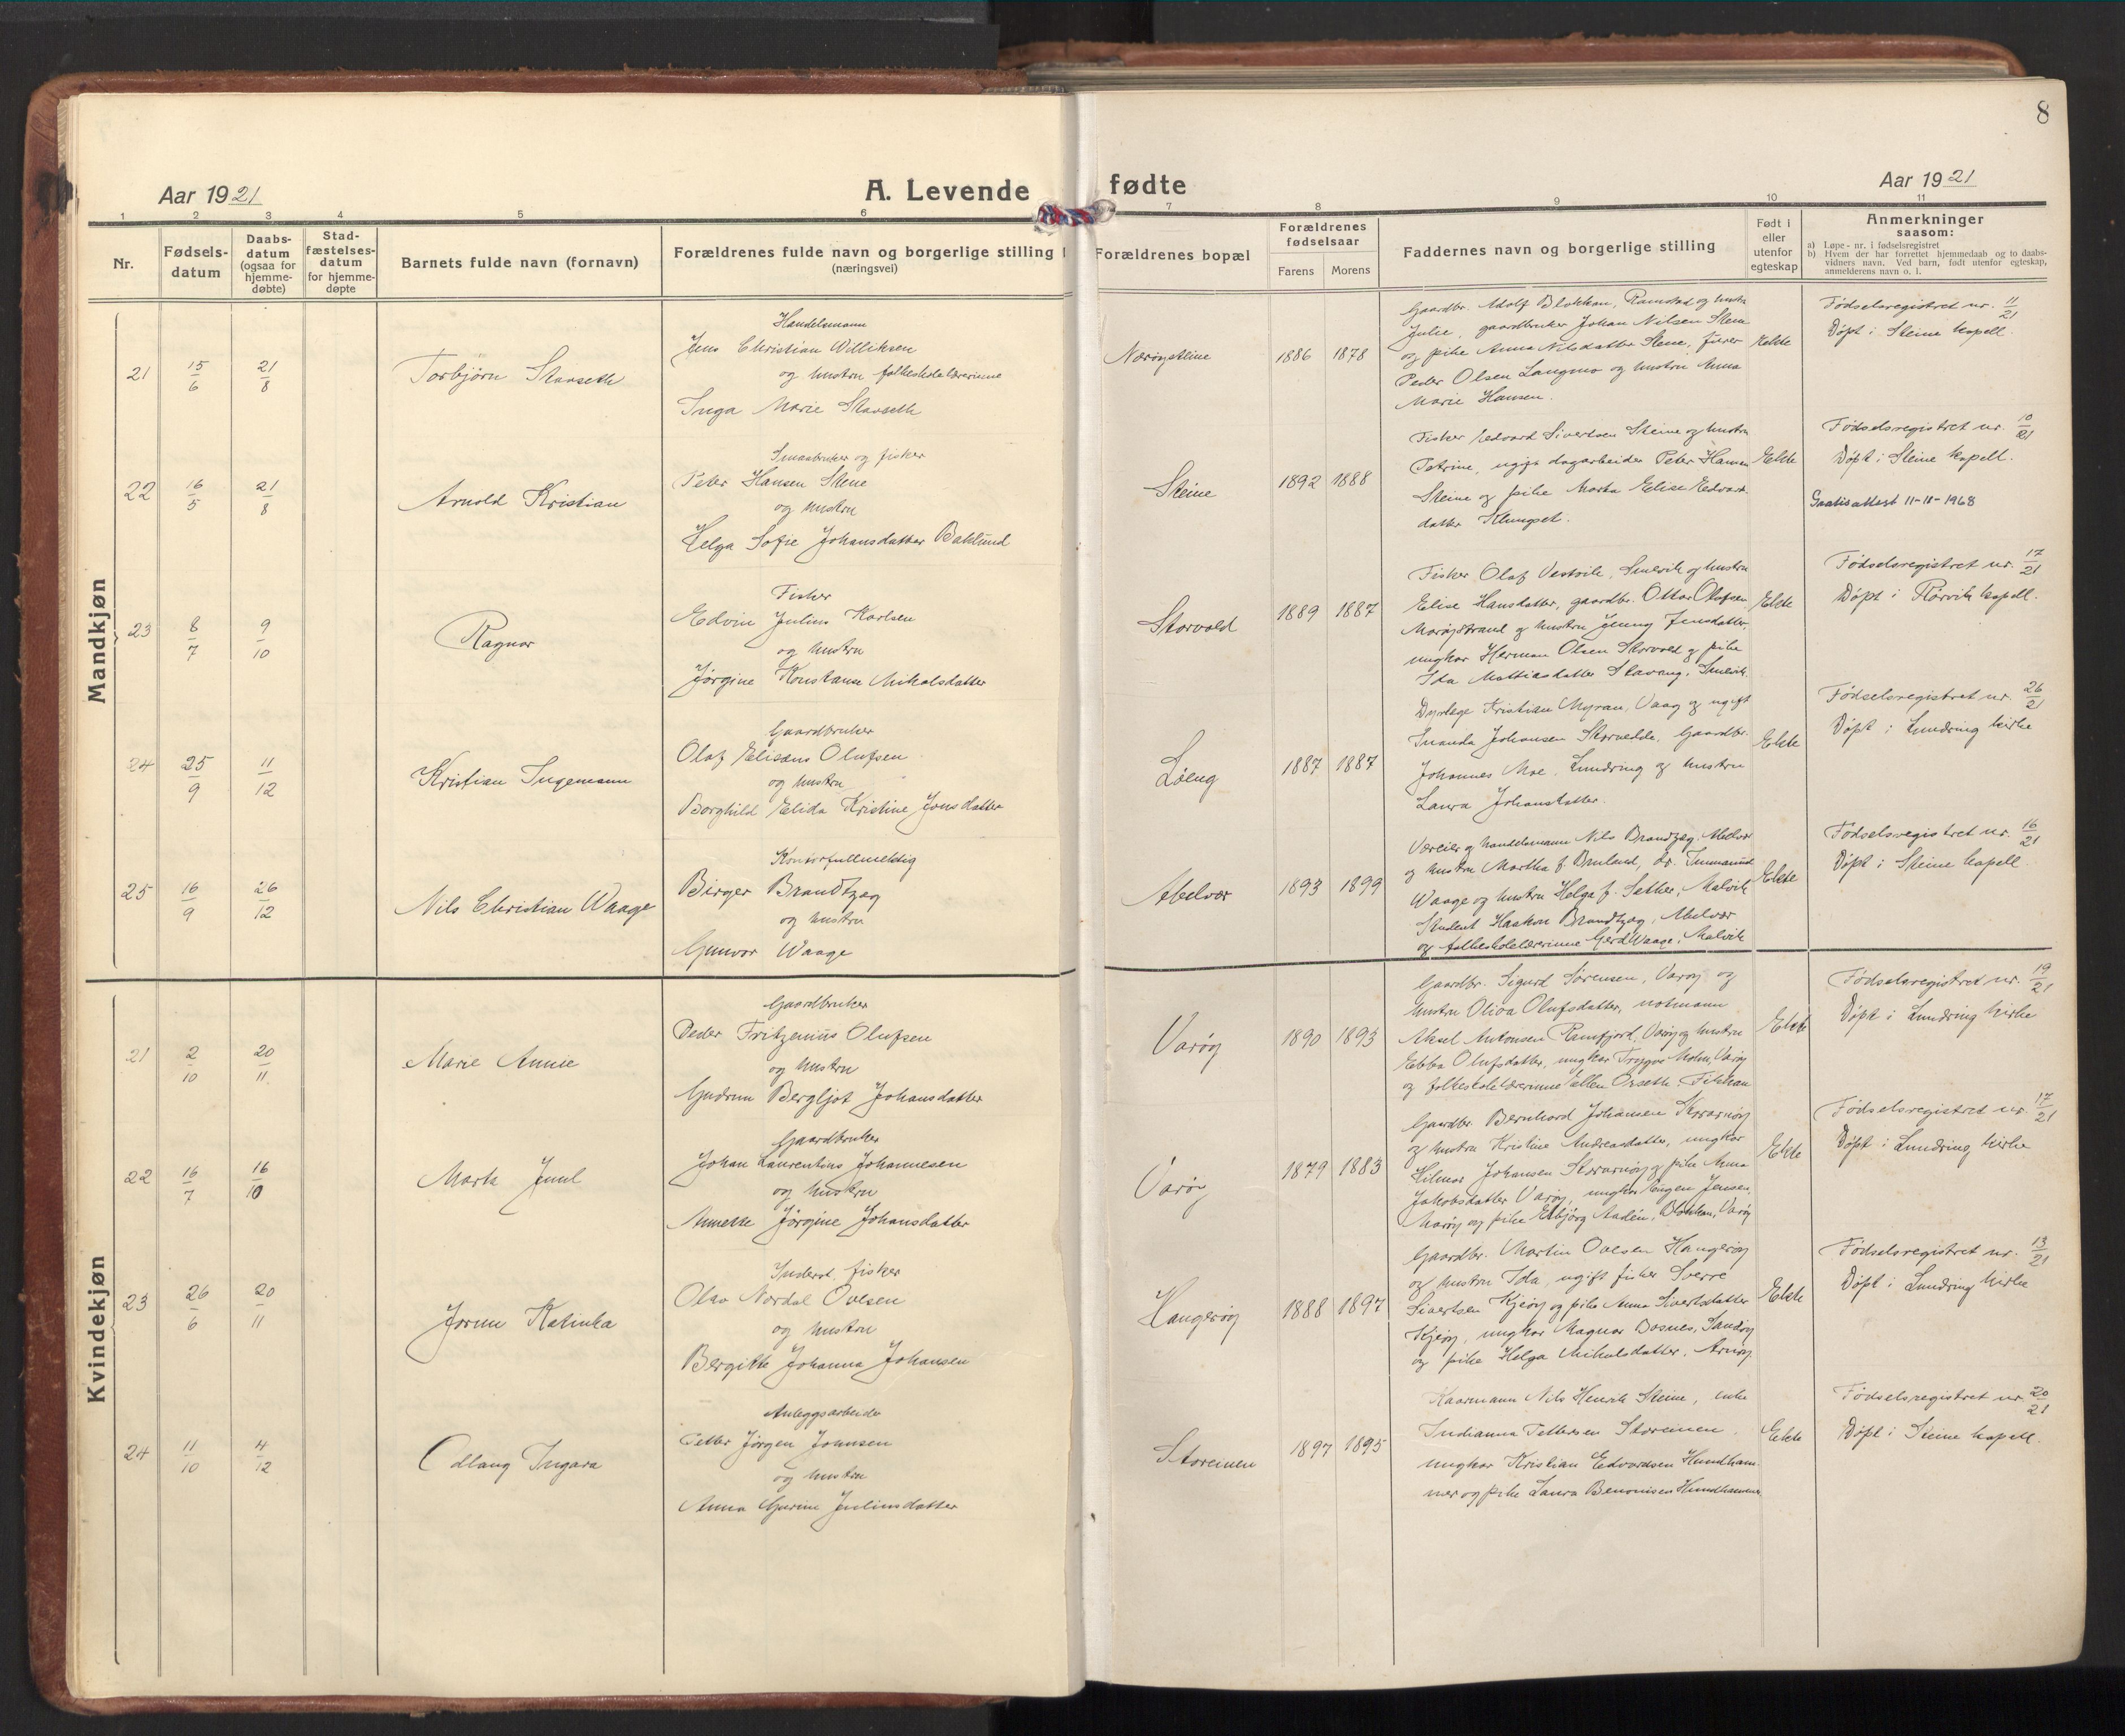 8
Aar 1921
A. Levende fødte
Aar 1921
1 2 3 4 5 6 7 8 9 10 11
Nr.
Fødsels-
datum
Daabs-
datum
(ogsaa for
hjemme-
døbte)
Stad-
fæstelses-
datum
for hjemme-
døpte
Barnets fulde navn (fornavn)
Forældrenes fulde navn og borgerlige stilling
(næringsvei)
Forældrenes bopæl
Forældrenes
fødselsaar
Farens Morens
Faddernes navn og borgerlige stilling
Født i
eller
utenfor
egteskap
Anmerkninger
saasom:
a) Løpe-nr. i fødselsregistret
b) Hvem der har forrettet hjemmedaab og to daabs-
vidners navn. Ved barn, født utenfor egteskap,
anmelderens navn o. l.
Mandkjøn
21 15/6 21/8
Torbjørn Stavseth
Handelsmann
Jens Christian Williksen
og hustru folkeskolelærerinne
Inga Marie Stavseth
Nærøysteine
1886 1878
Gaardbr. Adolf Blikken, Ramstad og hustru
Julie, gaardbruker Johan Nilsen Stene
og pike Anna Nilsdatter Stene, fisker
Peder Olsen Langmo og hustru Anna
Marie Hansen.
Ekte
Fødselsregistret nr. 11/21
Døpt i Steine kapell.
22 16/5 21/8
Arnold Kristian
Smaabruker og fisker
Peter Hansen Stene
og hustru
Helga Sofie Johansdatter Baklund
Steine
1892 1888
Fisker Edvard Sivertsen Steine og hustru
Petrine, ugift dagarbeider Peter Hansen
Steine og pike Marta Elise Edvards-
datter Klungset.
Ekte
Fødselsregistret nr. 10/21
Døpt i Steine kapell.
Gratisattest 11-11-1968
23 8/7 9/10
Ragnar
Fisker
Edvin Julius Karlsen
og hustru
Jørgine Konstanse Nikolsdatter
Storvold
1889 1887
Fisker Olaf Vestvik, Smevik og hustru
Elise Hansdatter, gaardbr. Ottar Olafsen
Marøystrand og hustru Jenny Jensdatter,
ungkar Herman Olsen Storvold og pike
Ida Mattiasdatter Stavang, Smevik
Ekte
Fødselsregistret nr. 17/21
Døpt i Rørvik kapell.
24 25/9 11/12
Kristian Ingemann
Gaardbruker
Olaf Eliseus Olufsen
og hustru
Borghild Elida Kristine Jonsdatter
Løeng
1887 1887
Dyrlæge Kristian Myran, Vaag og ugift
Inanda Johansen Storvedde, Gaardbr.
Johannes Moe, Lundring og hustru
Laura Johansdatter.
Ekte
Fødselsregistret nr. 26/21
Døpt i Lundring kirke
25 16/9 26/12
Nils Christian Waage
Kontorfullmektig
Birger Brandtzæg
og hustru
Gunvor Waage
Abelvær
1893 1899
Væreier og handelsmann Nils Brandtzæg, Abelvær
og hustru Martha f. Bruland, dr. Immanuel
Waage og hustru Helga f. Sæther, Malvik
Student Haakon Brandtzæg, Abelvær
og folkeskolelærerinne Gerd Waage, Malvik
Ekte
Fødselsregistret nr. 16/21
Døpt i Steine kapell.
Kvindekjøn
21 2/10 20/11
Marie Annie
Gaardbruker
Peder Fritzenius Olufsen
og hustru
Gudrun Bergljot Johansdatter
Varøy
1890 1893
Gaardbr. Sigurd Sørensen, Varøy og
hustru Oliva Olufsdatter, notmann
Aksel Antonsen Ramfjord, Varøy og hustru
Ebba Olufsdatter, ungkar Trygve Holm, Varøy
og folkeskolelærerinne Ellen Orseth, Filikan
Ekte
Fødselsregistret nr. 19/21
Døpt i Lundring kirke
22 16/7 16/10
Marta Juul
Gaardbruker
Johan Laurentius Johannesen
og hustru
Annette Jørgine Johansdatter
Varøy
1879 1883
Gaardbr. Bernhard Johansen Storarnøy
og hustru Kristine Andreasdatter, ungkar
Hilmar Johansen Storarnøy og pike Anna
Jakobsdatter Varøy, ungkar Eugen Jensen,
Marøy og pike Esbjørg Andén, Blikken, Varøy
Ekte
Fødselsregistret nr. 17/21
Døpt i Lundring kirke
23 26/6 20/11
Jorun Katinka
Inderst, fisker
Olav Nordal Ovesen
og hustru
Bergitte Johanna Johansen
Hangerøy
1888 1897
Gaardbr. Martin Ovesen Hangerøy
og hustru Ida, ugift fisker Sverre
Sivertsen Kjeøy og pike Anna Sivertsdatter
Kjeøy, ungkar Magnar Bosnes, Sandøy
og pike Helga Nikolsdatter, Arnøy.
Ekte
Fødselsregistret nr. 13/21
Døpt i Lundring kirke
24 11/10 4/12
Odlaug Ingara
Anleggsarbeider
Petter Jørgen Jonnsen
og hustru
Anna Gurine Juliusdatter
Storeinen
1897 1895
Kaarmann Nils Henrik Steine, enke
Indianna Pettersen Storeinen.
ungkar Kristian Edvardsen Hundham-
mer og pike Laura Benonisen Hundhammer.
Ekte
Fødselsregistret nr. 20/21
Døpt i Steine kapell.